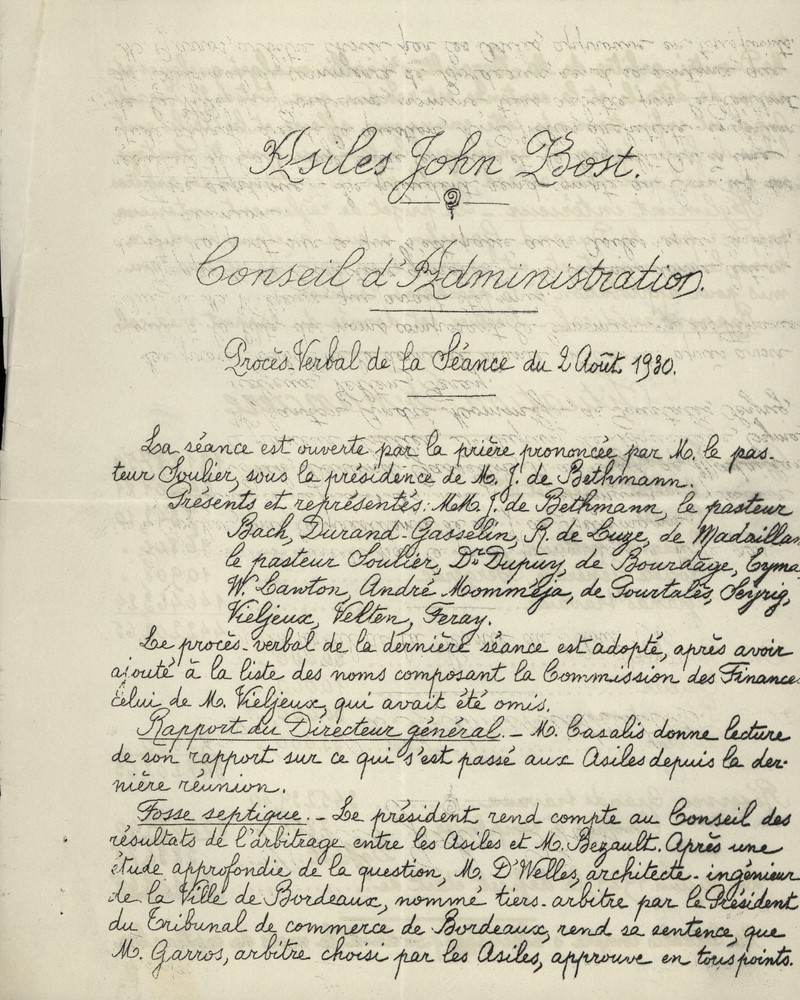 Asiles John Bost.
Conseil d'Administration.
Procès-Verbal de la Séance du 2 Août 1930.
La séance est ouverte par la prière prononcée par M. le pas-
teur Soulier, sous la présidence de M. J. de Bethmann.
Présents et représentés: MM J. de Bethmann, le pasteur
Bach, Durand-Gasselin, R. de Luze, de Madaillan
le pasteur Soulier, Dr Dupuy, de Bourdage, Eyma
W. Lawton, André Momméja, de Pourtalès, Seyrig,
Vieljeux, Velten, Feray.
Le procès-verbal de la dernière séance est adopté, après avoir
ajouté à la liste des noms composant la Commission des Finances
celui de M. Vieljeux, qui avait été omis.
Rapport du Directeur général. - M. Casalis donne lecture
de son rapport sur ce qui s'est passé aux Asiles depuis la der-
nière réunion.
Fosse septique. - Le président rend compte au Conseil des
résultats de l'arbitrage entre les Asiles et M. Bezault. Après une
étude approfondie de la question, M. D'Welles, architecte-ingénieur
de la Ville de Bordeaux, nommé tiers-arbitre par le Président
du Tribunal de commerce de Bordeaux, rend sa sentence, que
M. Garros, arbitre choisi par les Asiles, approuve en tous points.